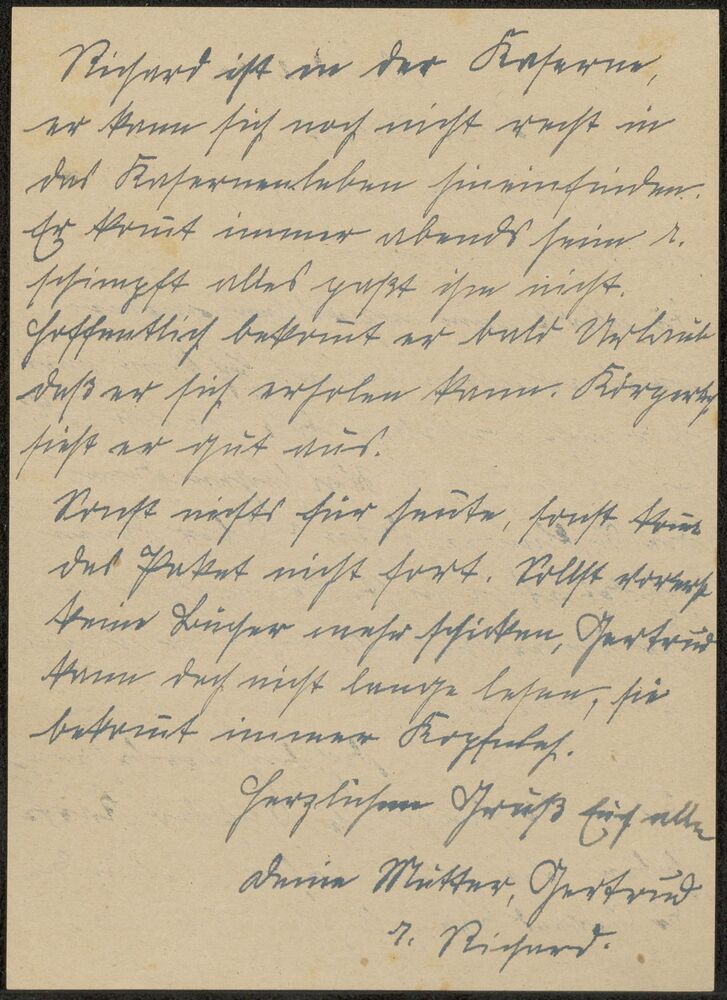 Richard ist in der Kaserne,
er kann sich noch nicht recht in
das Kasernenleben hineinfinden.
Er kom̅t immer abends heim u.
schimpft alles paßt ihm nicht.
Hoffentlich bekom̅t er bald Urlaub
daß er sich erholen kann. Körperlich
sieht er gut aus.
Sonst nichts für heute, sonst kom̅t
das Paket nicht fort. Sollst vorerst
keine Bücher mehr schicken, Gertrud
kann doch nicht lange lesen, sie
bekom̅t immer Kopfweh.
Herzlichen Gruß Euch allen
deine Mutter, Gertrud
u. Richard.